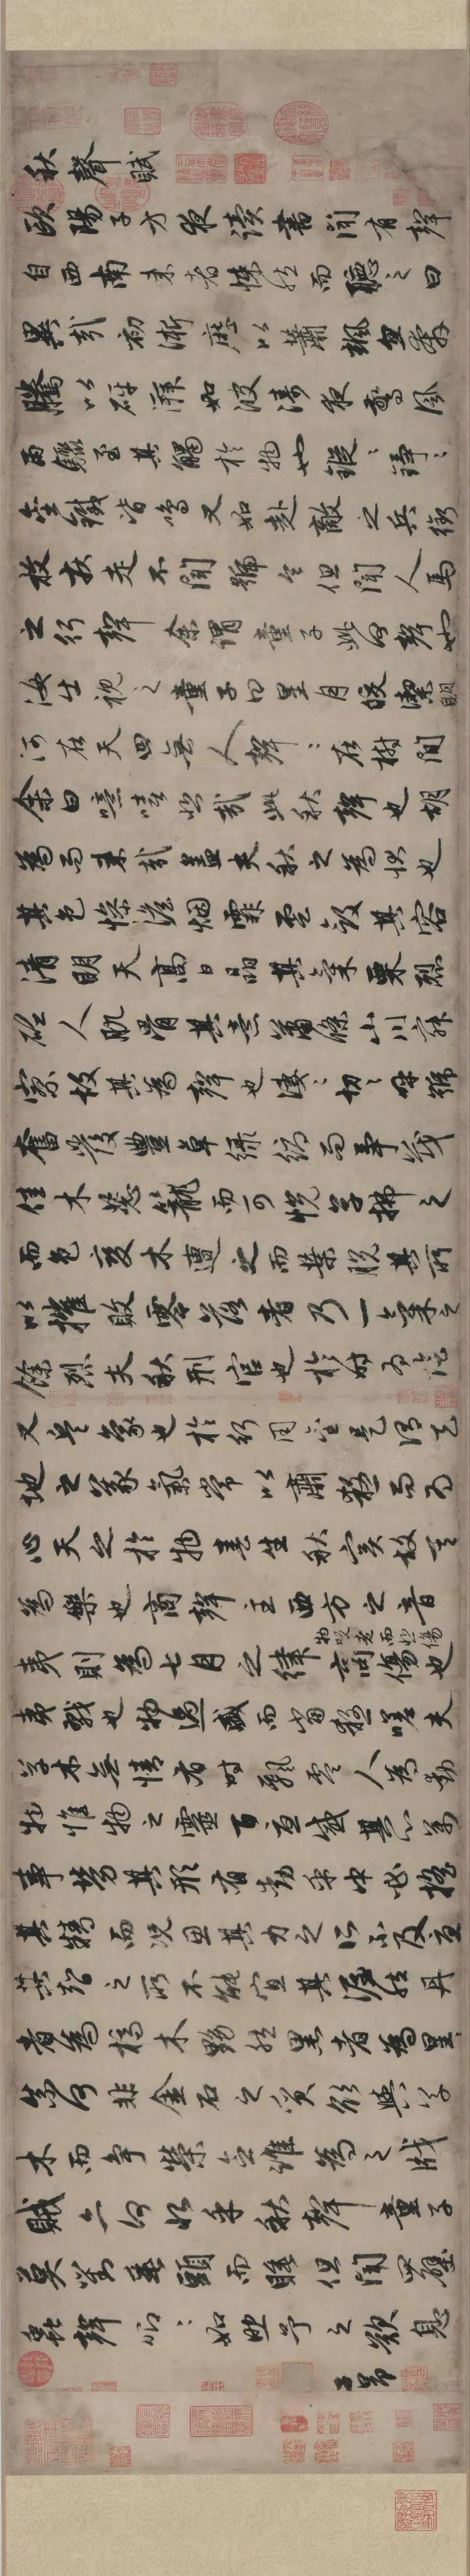 秋聲賦
歐陽子方夜讀書聞有聲
自西南来者悚然而聽之曰
異哉初淅瀝以蕭颯忽奔
騰以砰湃如波濤夜驚風
雨驟至其觸於物也鏦〻錚〻
金鐵皆鳴又如赴敵之兵銜
枚疾走不聞號令但聞人馬
之行聲余謂童子此何聲也
汝出視之童子曰星月皎潔明
河在天四無人聲〻在樹間
余曰噫嘻悲哉此秋聲也胡
為而来哉蓋夫秋之為狀也
其色慘淡烟霏雲斂其容
清明天高日晶其氣栗烈
砭人肌骨其意蕭條山川寂
寥故其為聲也淒〻切〻呼號
奮發豐草綠縟而爭茂
佳木葱籠而可悅草拂之
而色變木遭之而葉脫其所
以摧敗零落者乃一氣之
餘烈夫秋刑官也於時為陰
又兵象也於行用金是謂天
地之義氣常以肅殺而為
心天之於物春生秋實故其
為樂也商聲主西方之音
夷則為七月之律商傷也
物既老而悲傷
夷戮也物過盛而當殺嗟夫
草木無情有時飄零人為動
物惟物之靈百憂感其心萬
事勞其形有動乎中必搖
其精而況思其力之所不及憂
其智之所不能宜其渥然丹
者為槁木黟然黑者為星〻
奈何非金石之質欲與草
木而爭榮念誰為之戕
賊亦何恨乎秋聲童子
莫對垂頭而睡但聞四壁
蟲聲唧〻如助予之歎息
子昂